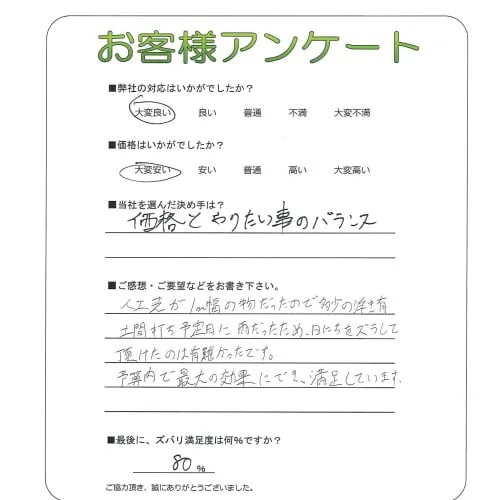 お客様アンケート
■弊社の対応はいかがでしたか？
大変良い 良い 普通 不満 大変不満
■価格はいかがでしたか？
大変安い 安い 普通 高い 大変高い
■当社を選んだ決め手は？
価格とやりたい事のバランス
■ご感想・ご要望などをお書き下さい。
人工芝が1m幅の物だったので多少の浮き有
土間打ち予定日に雨だったため、日にちをズラして
頂けたのは有難かったです。
予算内で最大の効果にでき、満足しています.
■最後に、ズバリ満足度は何％ですか？
80 %
ご協力頂き、誠にありがとうございました。